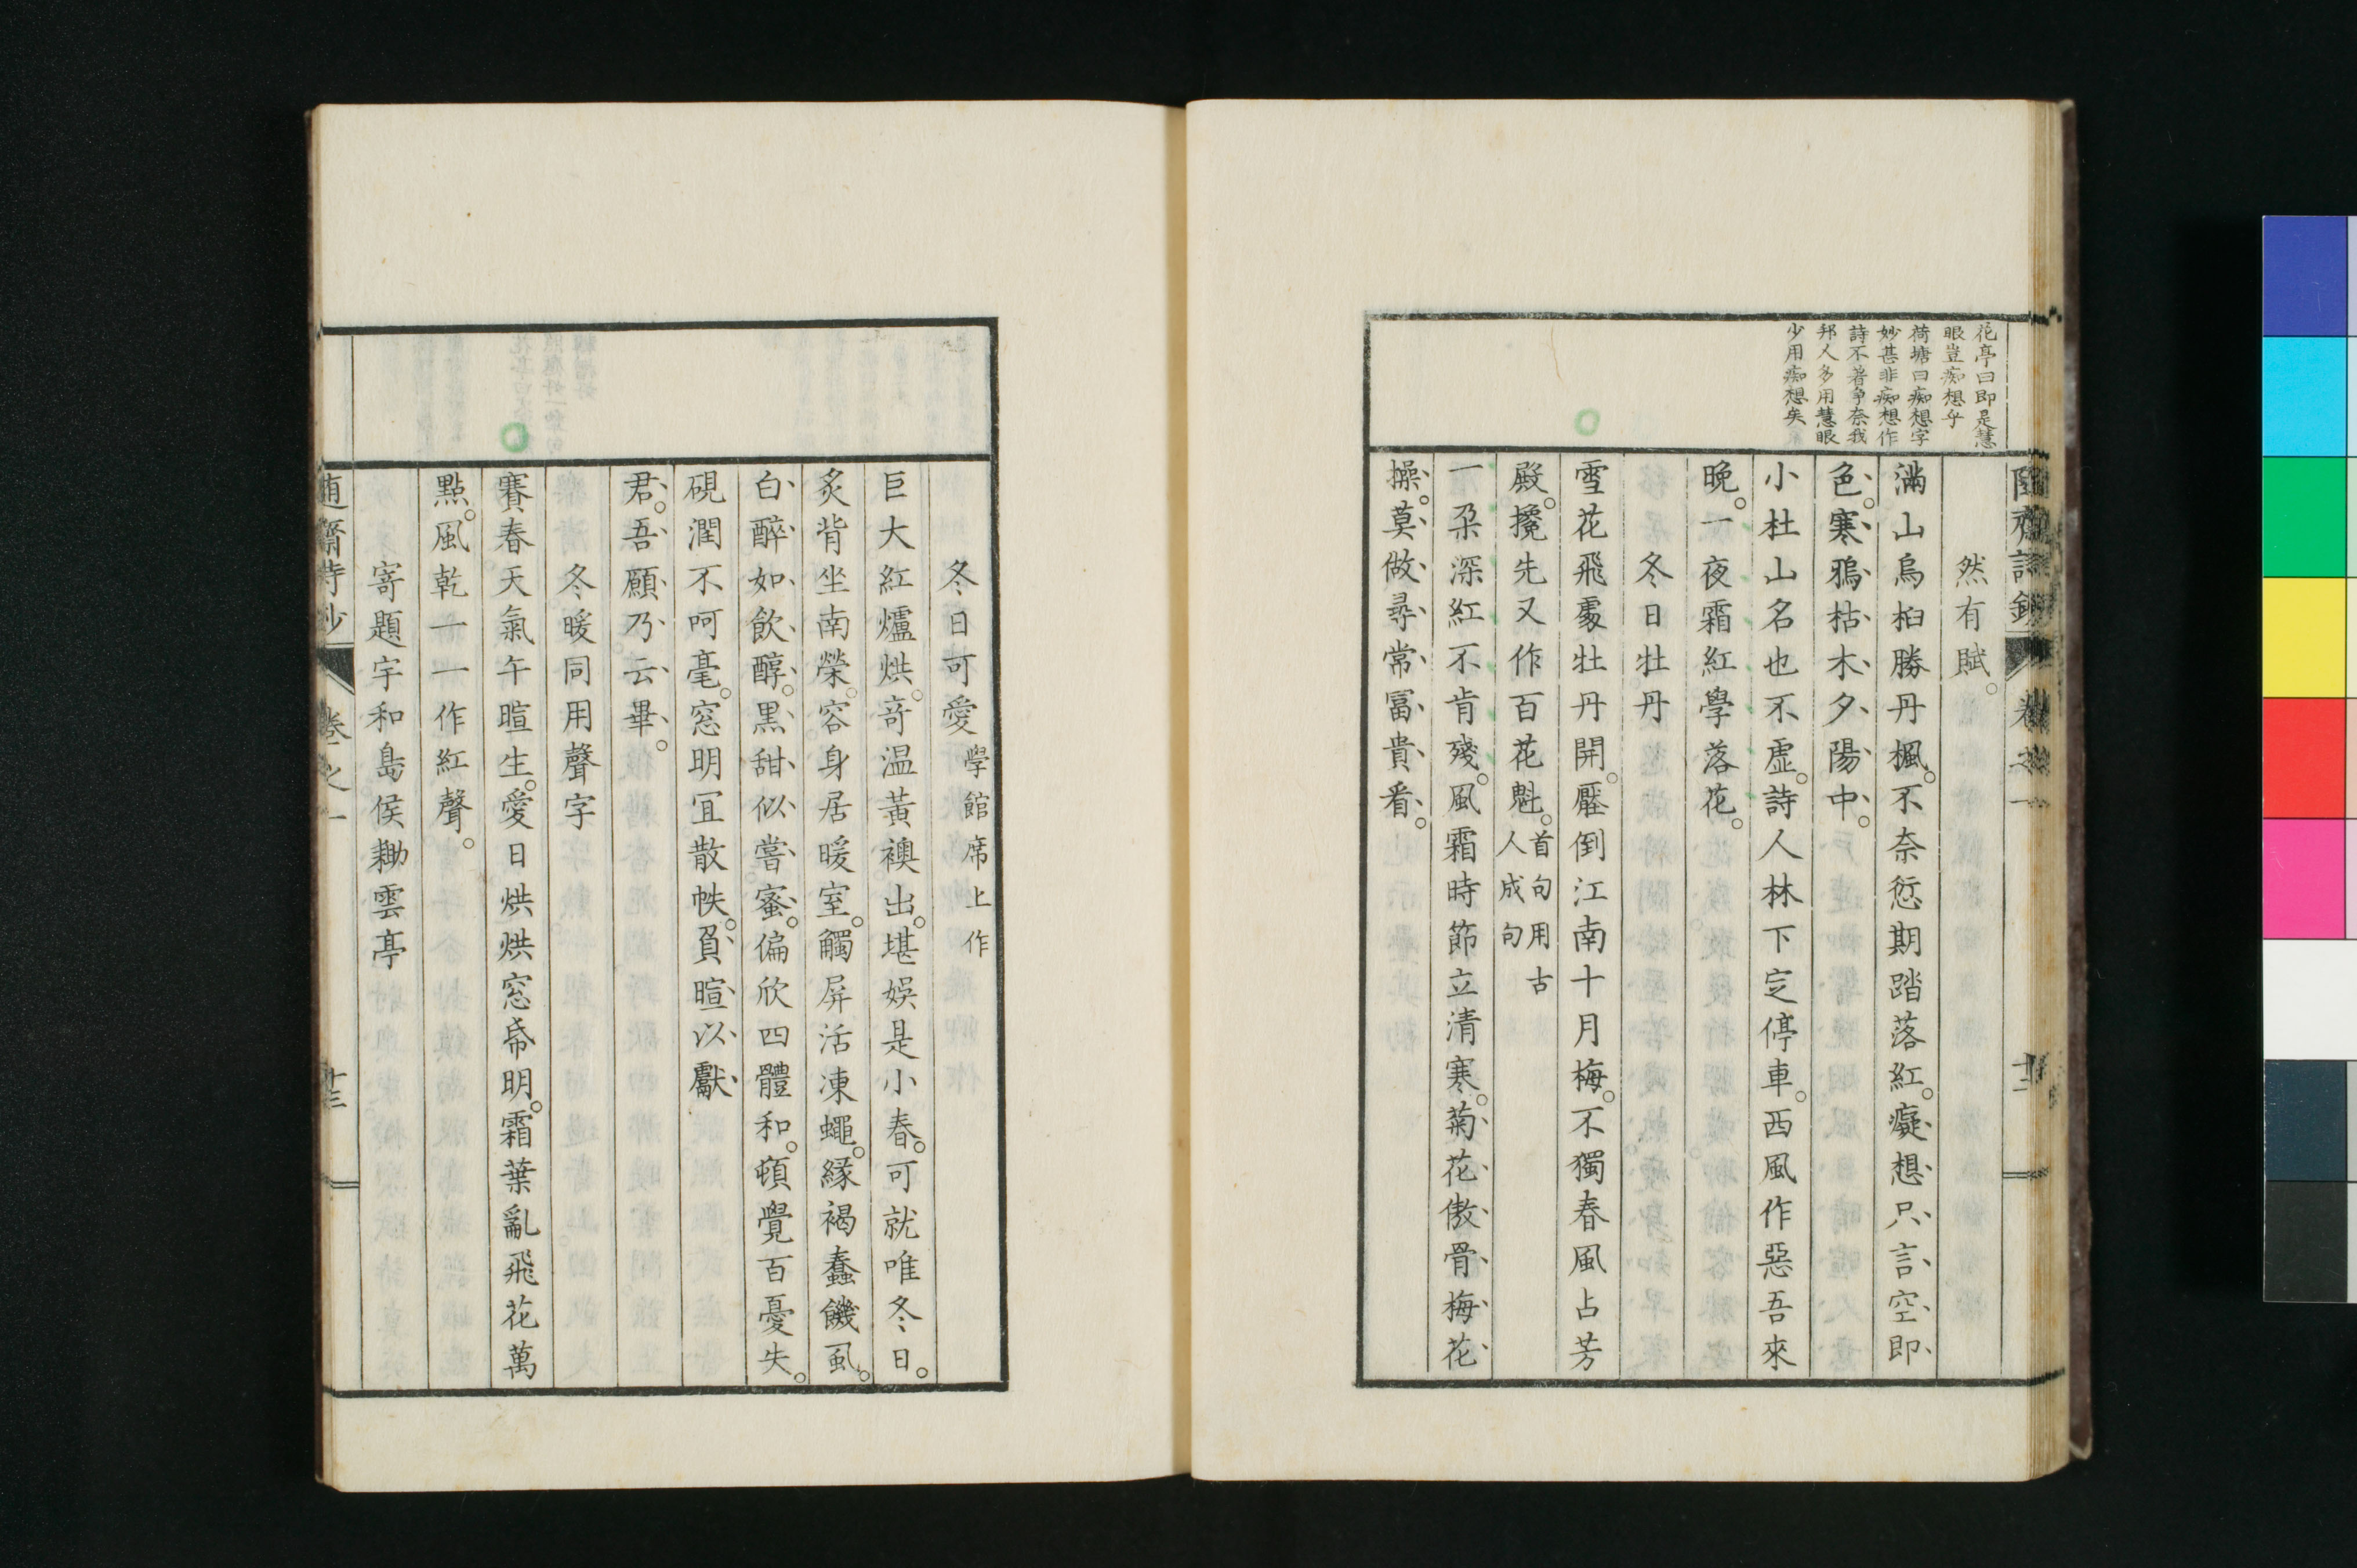 花亭曰即是慧
眼豈痴想乎
荷塘曰痴想字
妙甚非痴想作
詩不著爭奈我
邦人多用慧眼
少用痴想矣
然有賦。
滿山烏桕勝丹楓。不奈愆期踏落紅。癡想只言空即
色。寒鴉枯木夕陽中。
小杜山名也不虛。詩人林下定停車。西風作惡吾來
晚。一夜霜紅學落花。
冬日牡丹
雪花飛處牡丹開。壓倒江南十月梅。不獨春風占芳
殿。攙先又作百花魁。首句用古人成句
一朶深紅不肯殘。風霜時節立清寒。菊花傲骨梅花
操。莫做尋常富貴看。
卷之一
冬日可愛 學館席上作
巨大紅爐烘。奇温黃襖出。堪娛是小春。可就唯冬日。
炙背坐南榮。容身居暖室。觸屏活凍蠅。緣褐蠢饑虱。
白醉如飲醇。黑甜似嘗蜜。偏欣四體和。頓覺百憂失。
硯潤不呵毫。窓明宜散帙。負暄以獻
君。吾願乃云畢。
冬暖同用聲字
賽春天氣午暄生。愛日烘烘窓帋明。霜葉亂飛花萬
點。風乾一一作紅聲。
寄題宇和島侯耡雲亭
卷之一
十三